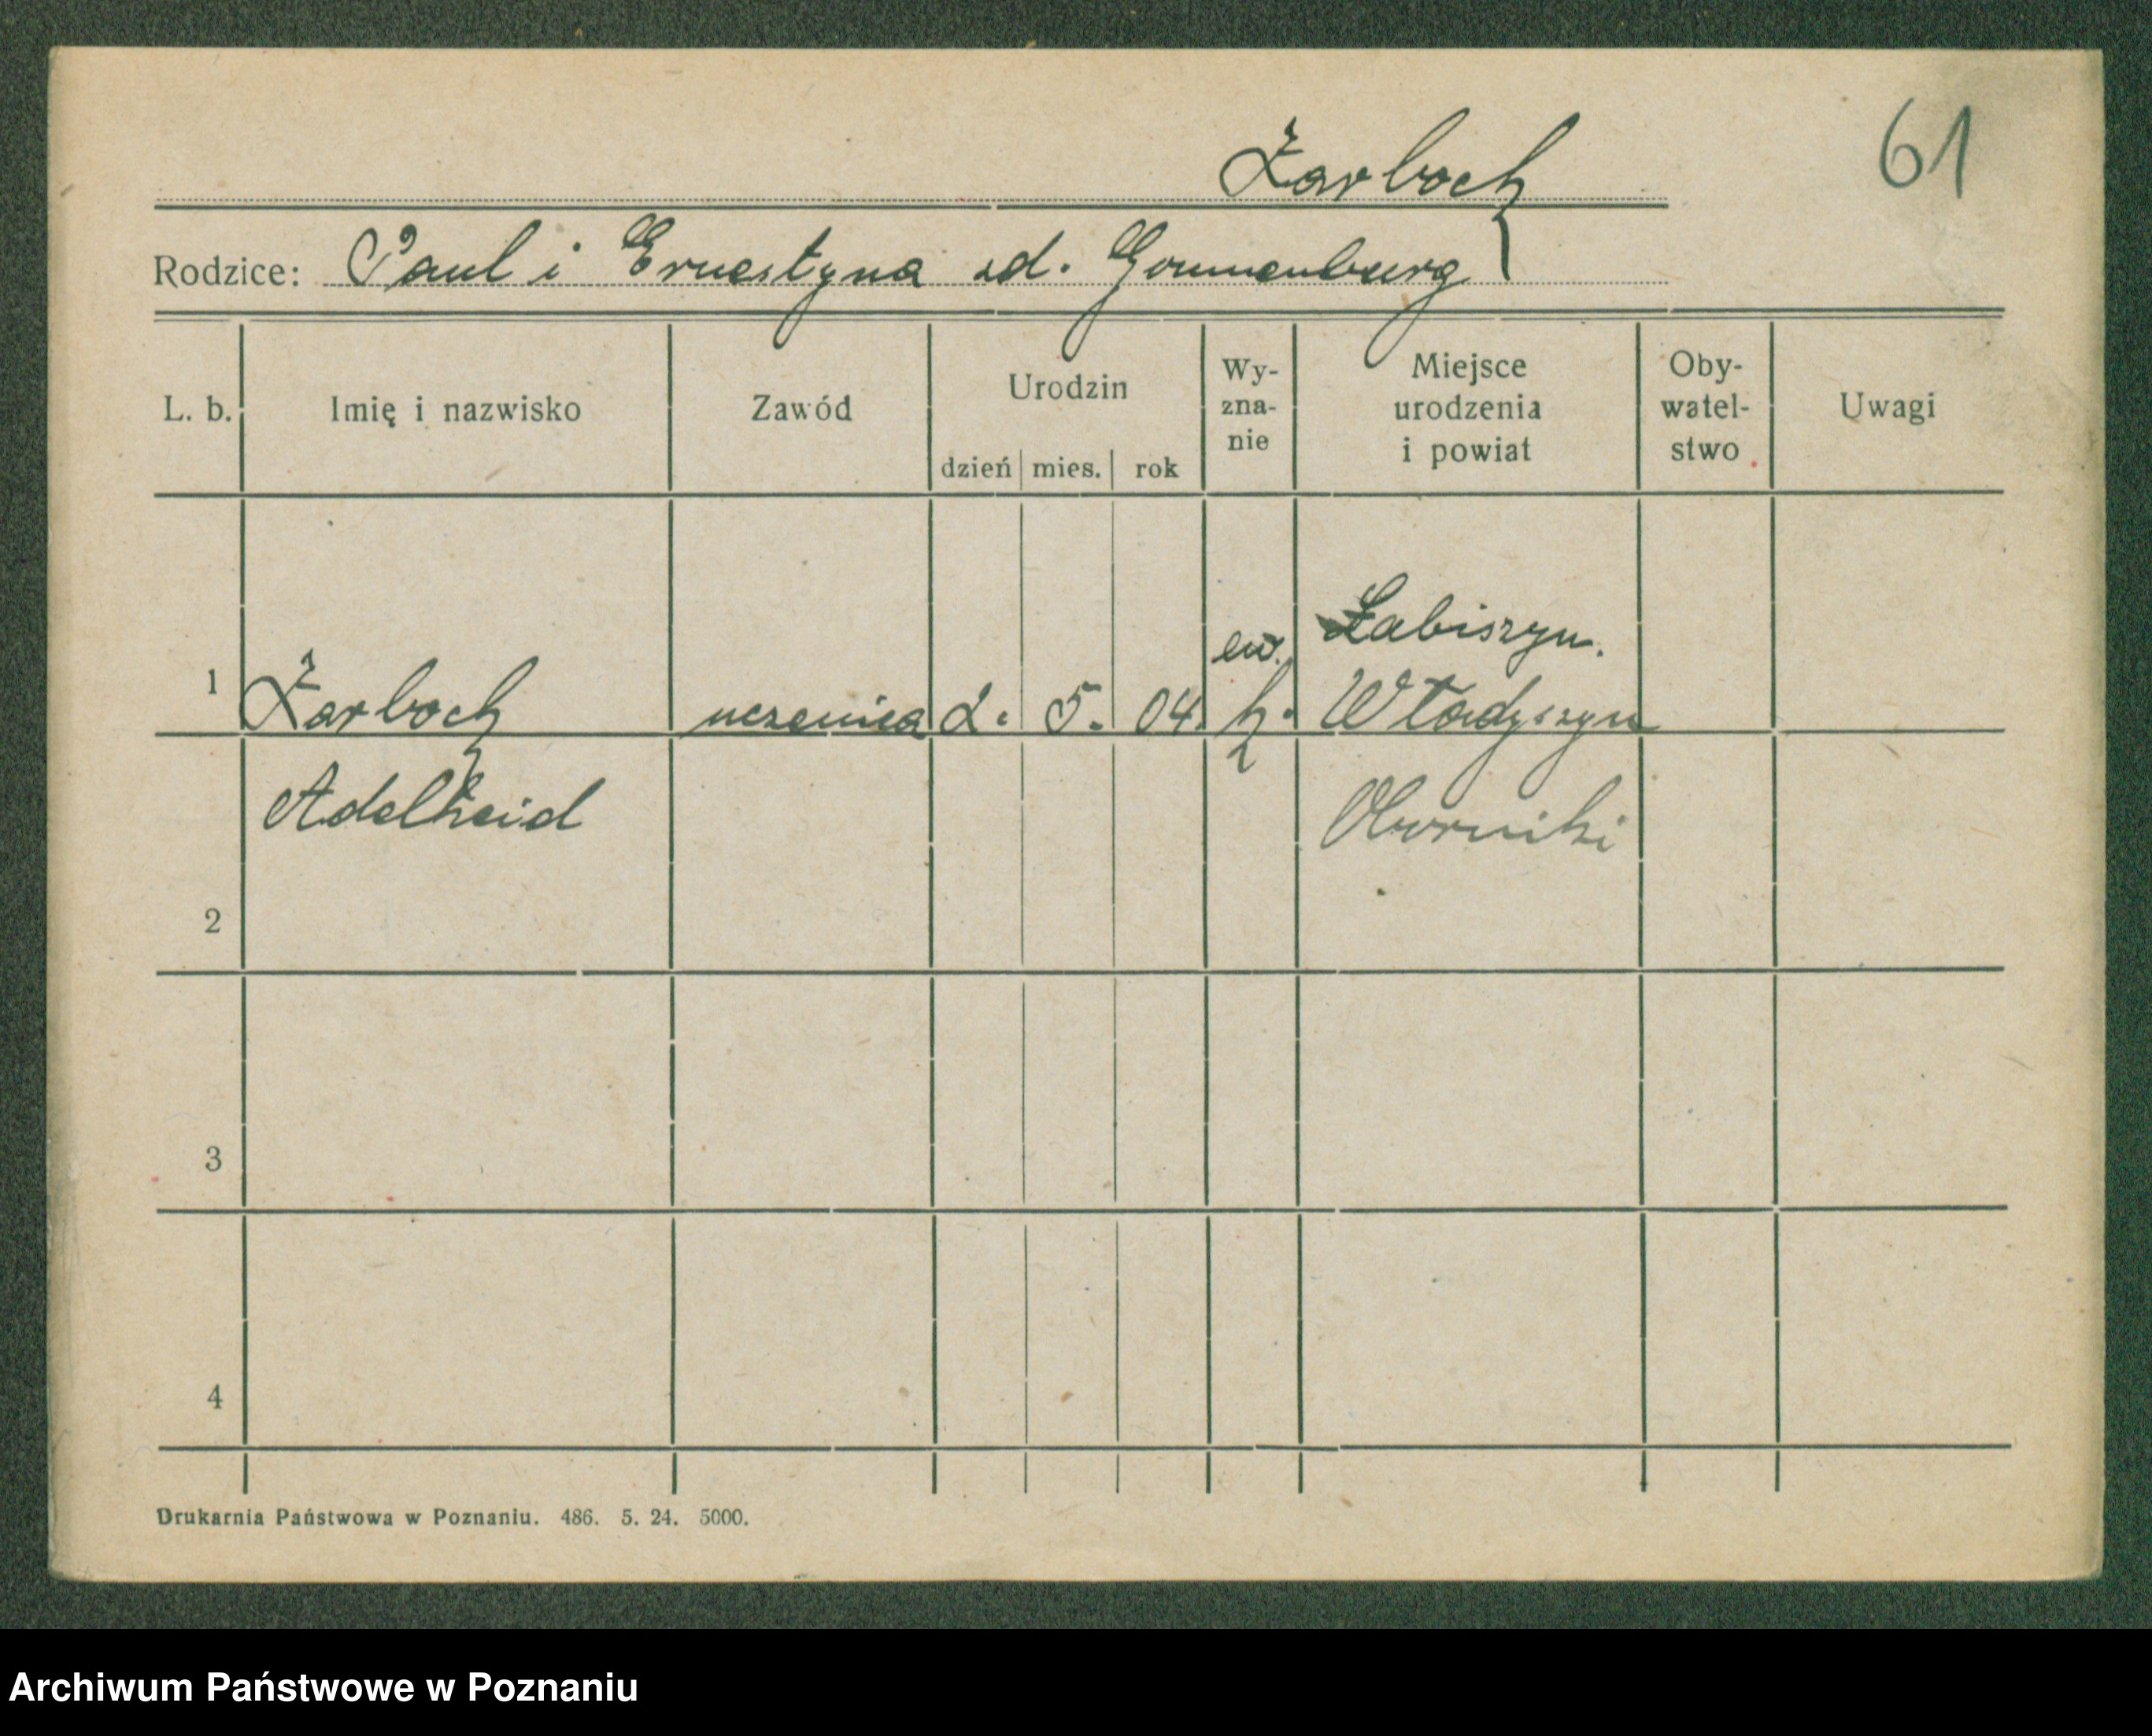 61
Zarboch
Rodzice: Paul i Ernestyna zd. Gonnenburg
L. b. Imię i nazwisko Zawód Urodzin dzień mies. rok Wy-zna-nie Miejsce urodzenia i powiat Oby-watel-stwo Uwagi
Łabiszyn.
ew.
1 Zarboch uczenica 2. 5. 04. h. Władyszyn
Adelheid Oborniki
2
3
4
Drukarnia Państwowa w Poznaniu. 486. 5. 24. 5000.
Archiwum Państwowe w Poznaniu